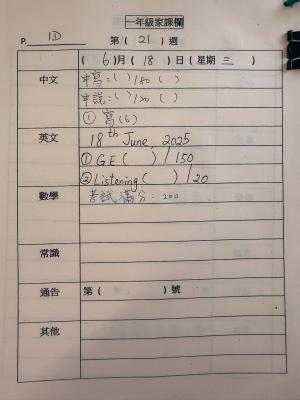 一年級家課欄
P. 1D 第 ( 21 ) 週
( 6 ) 月 ( 18 ) 日 ( 星期 三 )
中文 中寫:( )/80 ( )
中說:( )/20 ( )
① 寫(6)
英文 18th June, 2025
① GE ( ) /150
② Listening ( ) /20
數學 考試滿分: 200
常識
通告 第 ( ) 號
其他